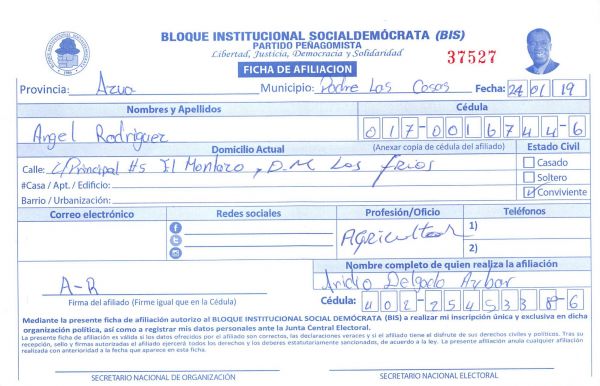 BLOQUE INSTITUCIONAL SOCIALDEMÓCRATA (BIS)
PARTIDO PEÑAGOMISTA
Libertad, Justicia, Democracia y Solidaridad
37527
FICHA DE AFILIACION
Provincia: Azua Municipio: Padre Las Casas Fecha: 24 01 19
Nombres y Apellidos Cédula
Angel Rodriguez 017-0016744-6
Domicilio Actual (Anexar copia de cédula del afiliado) Estado Civil
Calle: C/Principal #5 El Montazo, D.M Las frios Casado
#Casa / Apt. / Edificio: Soltero
Barrio / Urbanización: Conviviente
Correo electrónico Redes sociales Profesión/Oficio Teléfonos
Agricultor 1)
2)
Nombre completo de quien realiza la afiliación
A-R Delgado Aybar
Firma del afiliado (Firme igual que en la Cédula) Cédula: 402-2545338-6
Mediante la presente ficha de afiliación autorizo al BLOQUE INSTITUCIONAL SOCIAL DEMÓCRATA (BIS) a realizar mi inscripción única y exclusiva en dicha
organización política, así como a registrar mis datos personales ante la Junta Central Electoral.
La presente ficha de afiliación es válida si los datos ofrecidos por el afiliado son correctos, las declaraciones veraces y si el afiliado tiene el disfrute de sus derechos civiles y políticos. Tras su
recepción, sello y firmas autorizadas el afiliado ejercerá todos los derechos y los deberes estatutariamente sancionados, de acuerdo a la ley. La presente afiliación anula cualquier afiliación
realizada con anterioridad a la fecha que aparece en esta ficha.
SECRETARIO NACIONAL DE ORGANIZACIÓN SECRETARIO NACIONAL ELECTORAL